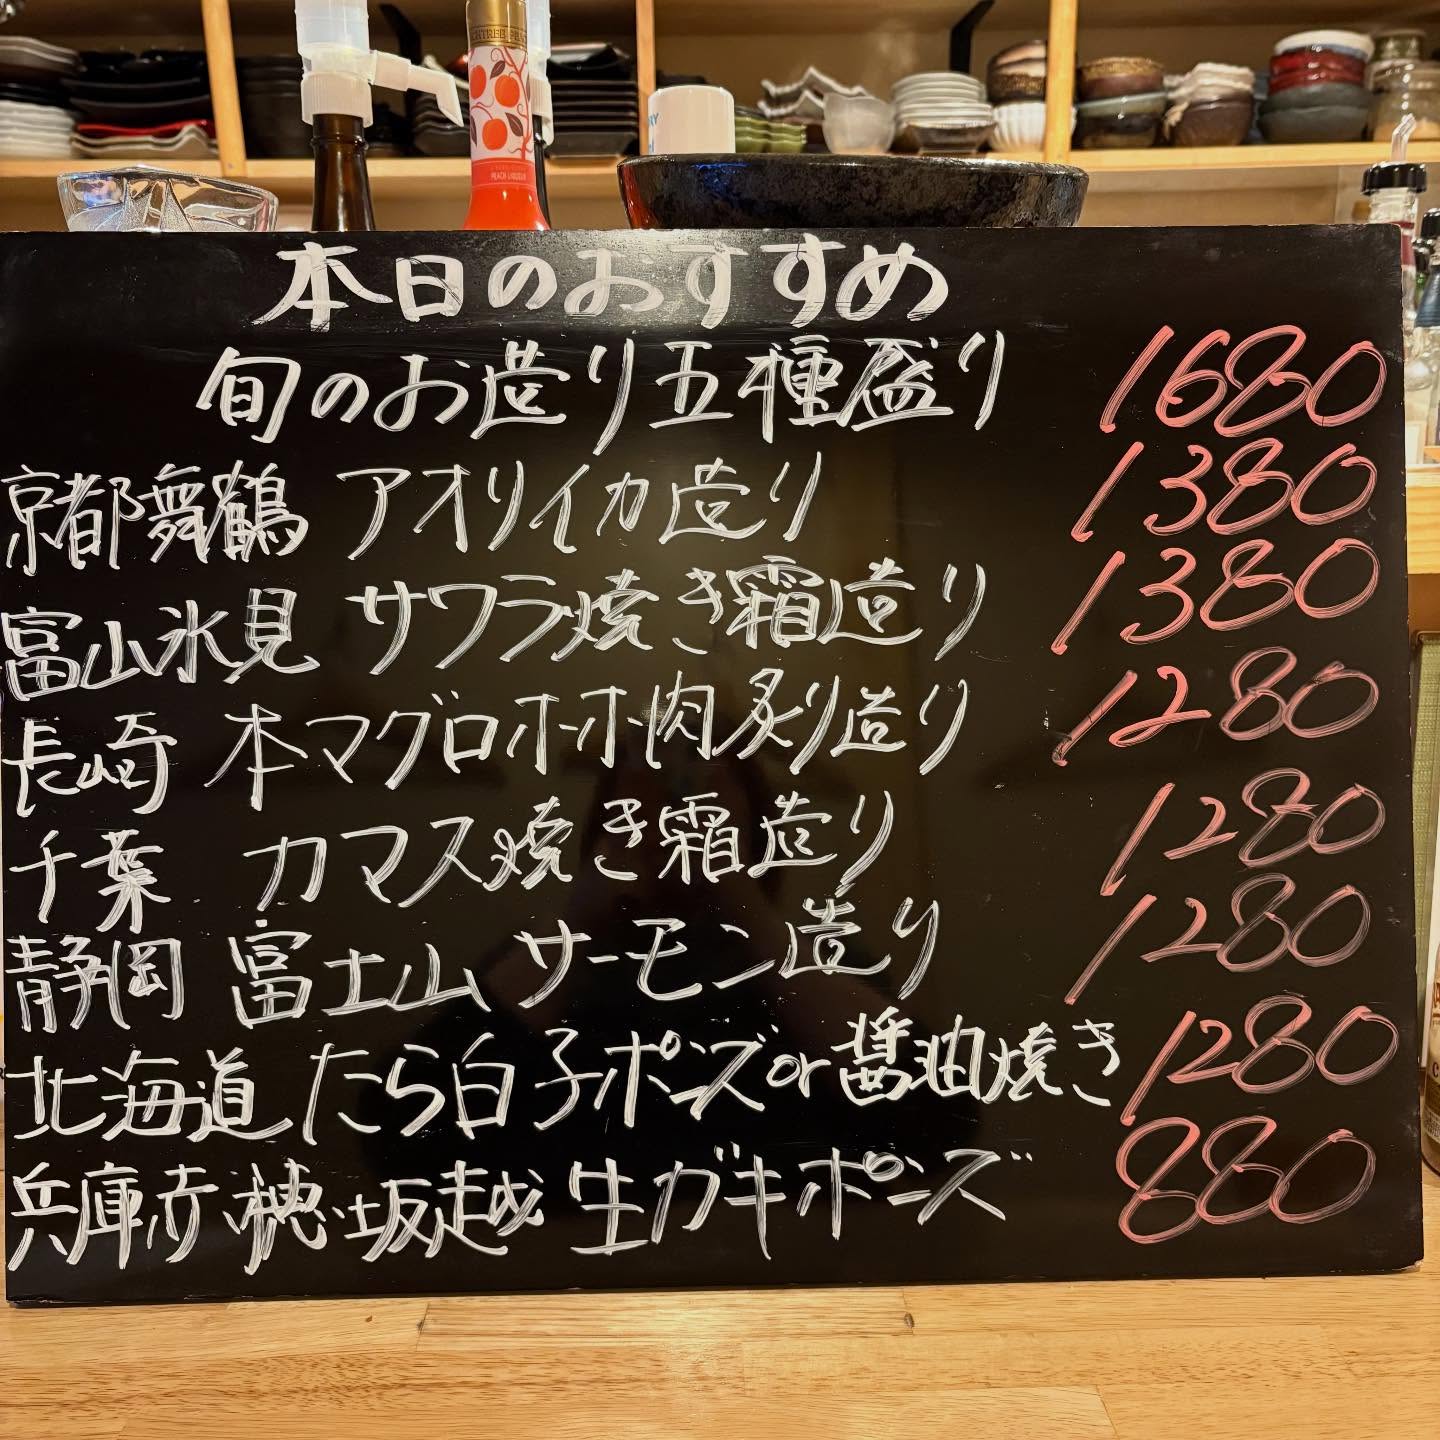 本日のおすすめ
旬のお造り五種盛り 1680
京都舞鶴 アオリイカ造り 1380
富山氷見 サワラ焼き霜造り 1380
長崎 本マグロホホ肉炙り造り 1280
千葉 カマス焼き霜造り 1280
静岡 富士山サーモン造り 1280
北海道 たら白子ポンズor醤油焼き 1280
兵庫赤穂・坂越 生ガキポンズ 880
PEACH LIQUEUR